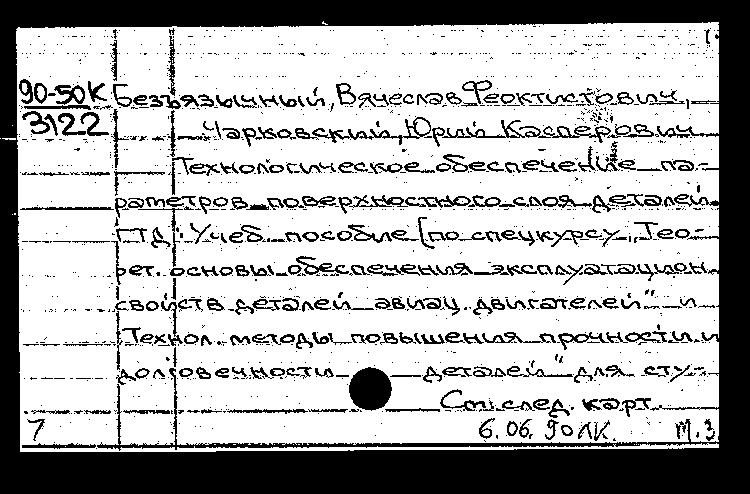 90-50К Безъязычный, Вячеслав Феоктистович,
3122 Чарковский, Юрий Касперович
Технологическое обеспечение па-
раметров поверхностного слоя деталей
ГТД: Учеб. пособие [по спецкурсу „Тео-
рет. основы обеспечения эксплуатацион.
свойств деталей авиац. двигателей" и
„Технол. методы повышения прочности и
долговечности деталей" для сту-
См. след. карт.
7 6.06.90 ЛК. м.з.